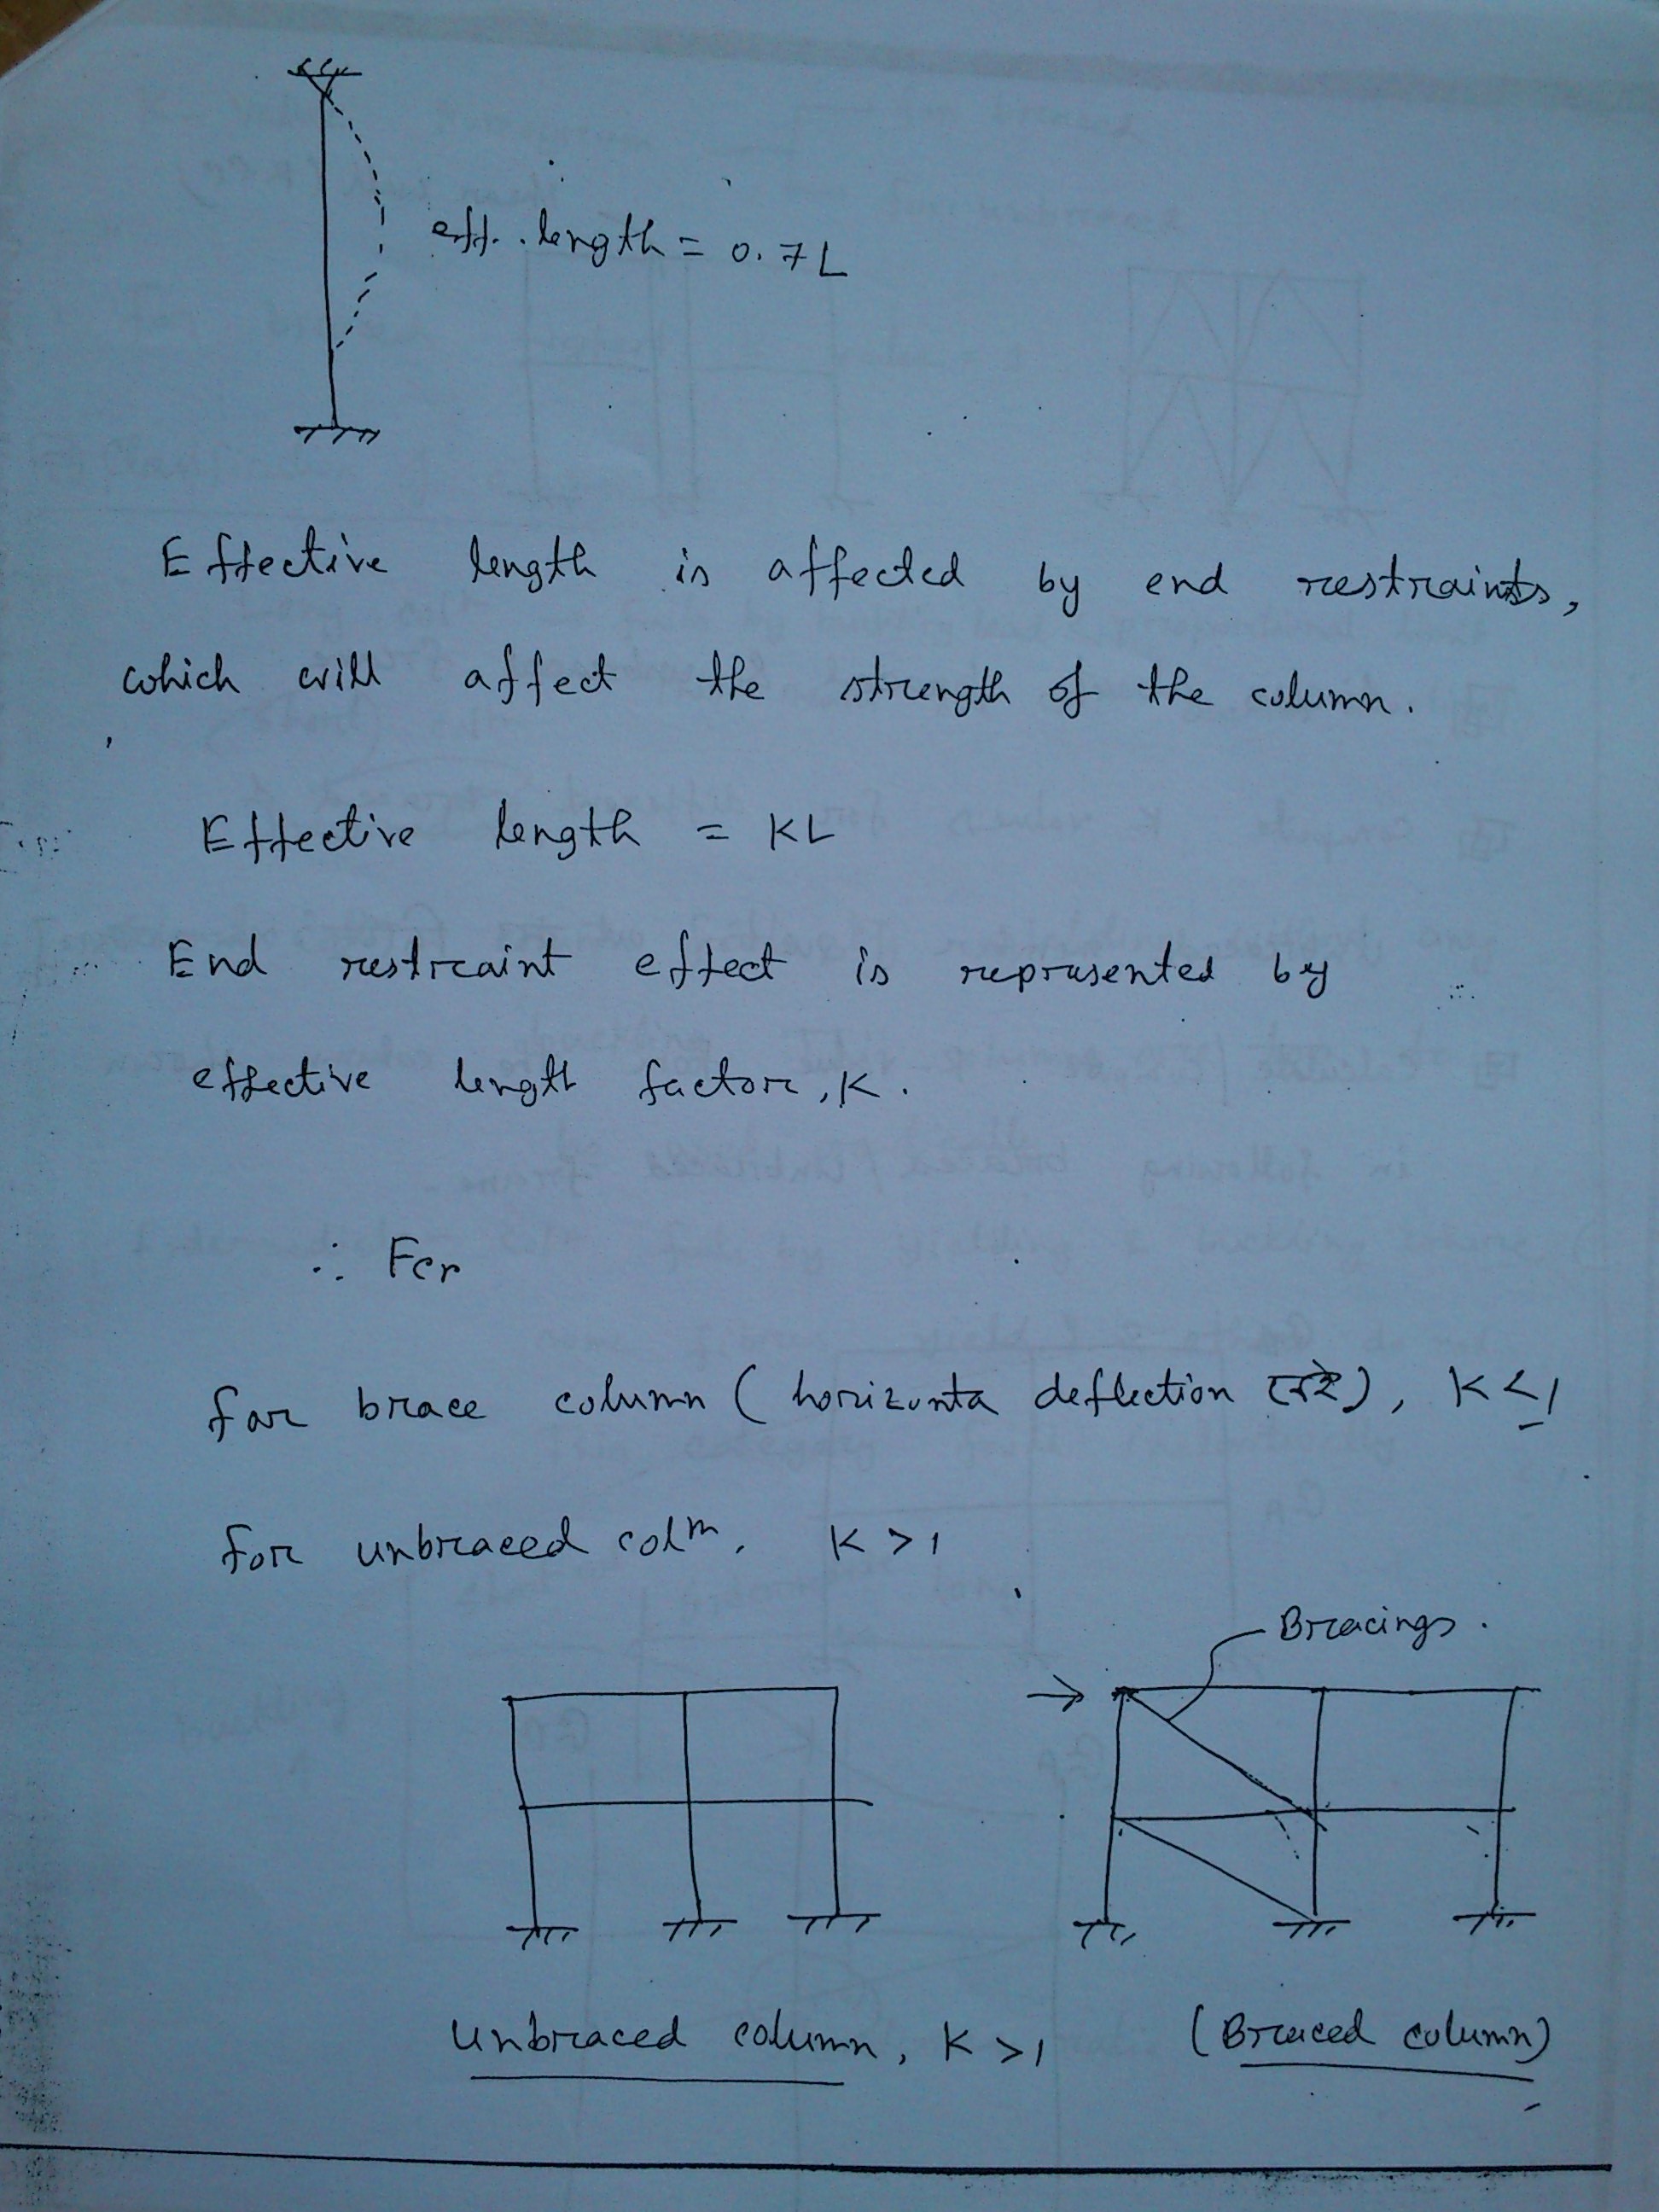 eff. length = 0.7L
Effective length is affected by end restraints,
which will affect the strength of the column.
Effective length = KL
End restraint effect is represented by
effective length factor, K.
∴ Fcr
for brace column ( horizonta deflection নাই), K ≤ 1
for unbraced colᵐ. K > 1
Bracings.
Unbraced column, K > 1
(Braced column)